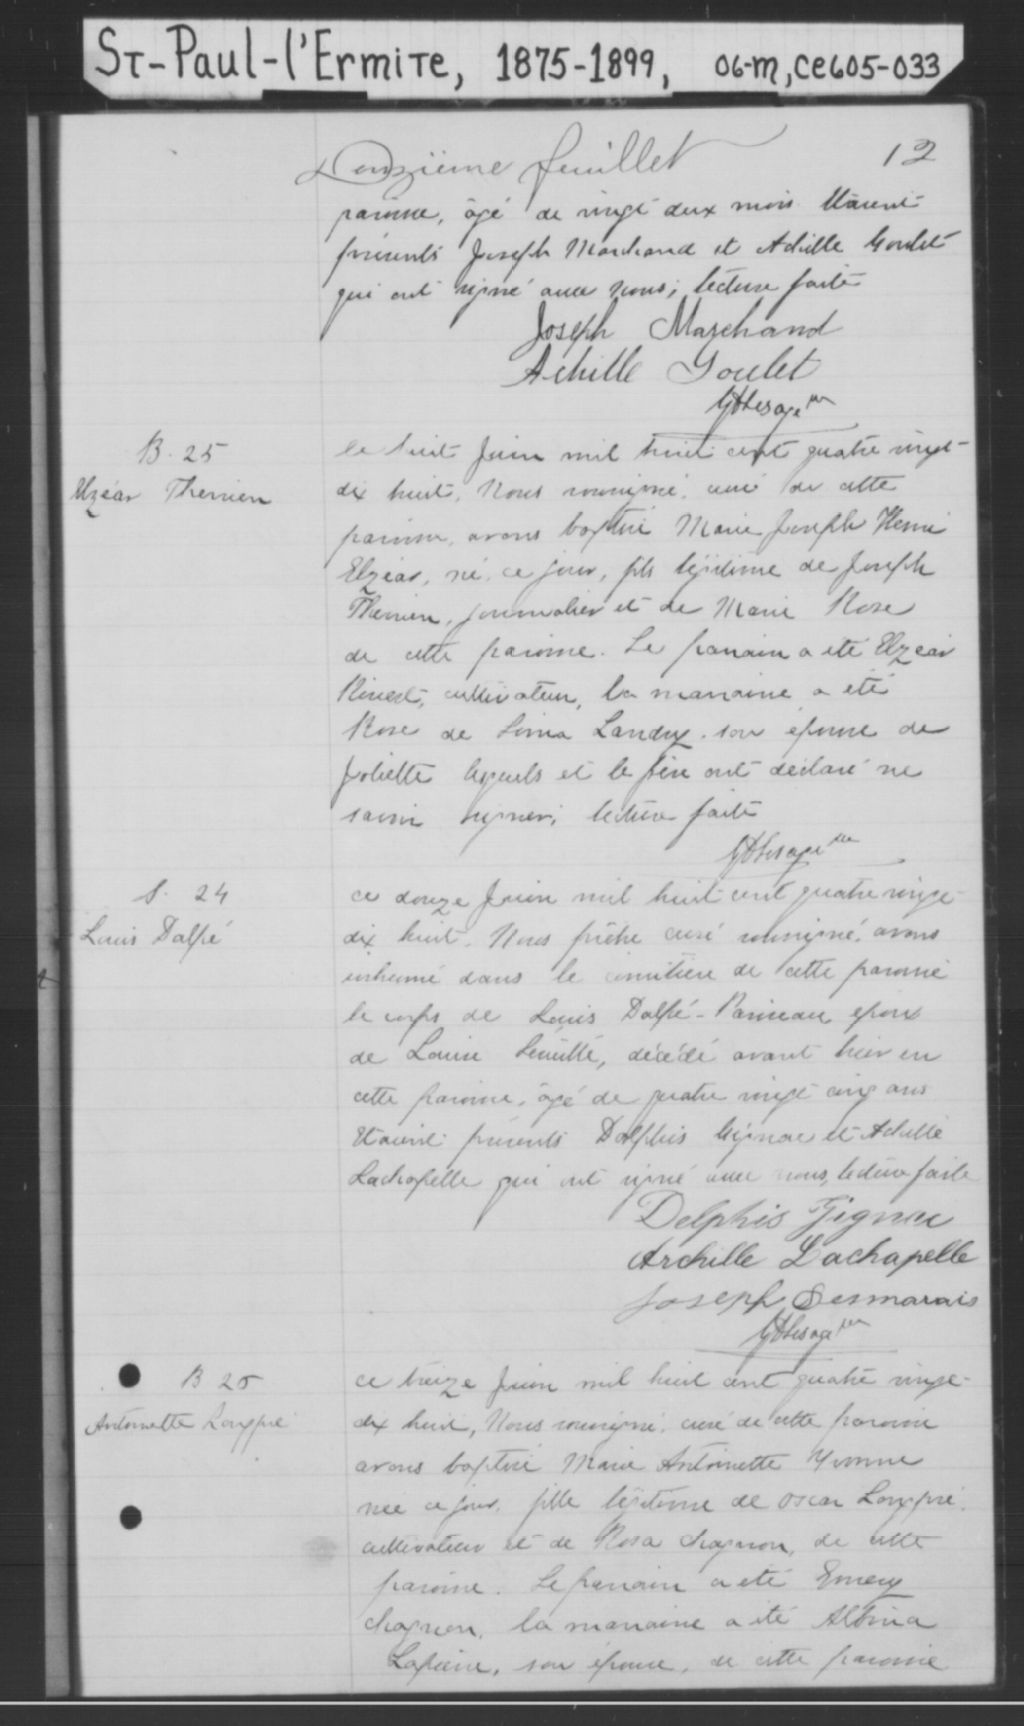 St-Paul-l'Ermite, 1875-1899, 06-M, CE605-033
Douzième feuillet 12
paroisse, âgé de vingt deux mois. Etaient
présents Joseph Marchand et Achille Goulet
qui ont signé avec nous; lecture faite
Joseph Marchand
Achille Goulet
B. 25
Elzéar Therrien
le huit Juin mil huit cent quatre vingt-
dix huit, Nous soussigné, curé de cette
paroisse, avons baptisé Marie Joseph Henri
Elzéar, né, ce jour, fils légitime de Joseph
Therrien, journalier et de Marie Rose
de cette paroisse. Le parrain a été Elzéar
Rivest, cultivateur, la marraine a été
Rose de Lima Landry. son épouse de
Joliette lesquels et le père ont déclaré ne
savoir signer; lecture faite
S. 24
Louis Dalpé
ce douze Juin mil huit cent quatre vingt-
dix huit. Nous prêtre curé soussigné, avons
inhumé dans le cimitière de cette paroisse
le corps de Louis Dalpé-Pariseau époux
de Louise, décédé avant hier en
cette paroisse, âgé de quatre vingt cinq ans
Etaient présents Dolphis et Achille
Lachapelle qui ont signé avec nous, lecture faite
Delphis
Archille Lachapelle
Joseph Desmarais
B 26
Antoinette Longpré
ce treize Juin mil huit cent quatre vingt-
dix huit, Nous soussigné, curé de cette paroisse
avons baptisé Marie Antoinette Yvonne
née ce jour, fille légitime de Oscar Longpré.
cultivateur et de Rosa Chagnon, de cette
paroisse. Le parrain a été Emery
Chagnon, la marraine a été Albina
Lapierre, son épouse, de cette paroisse